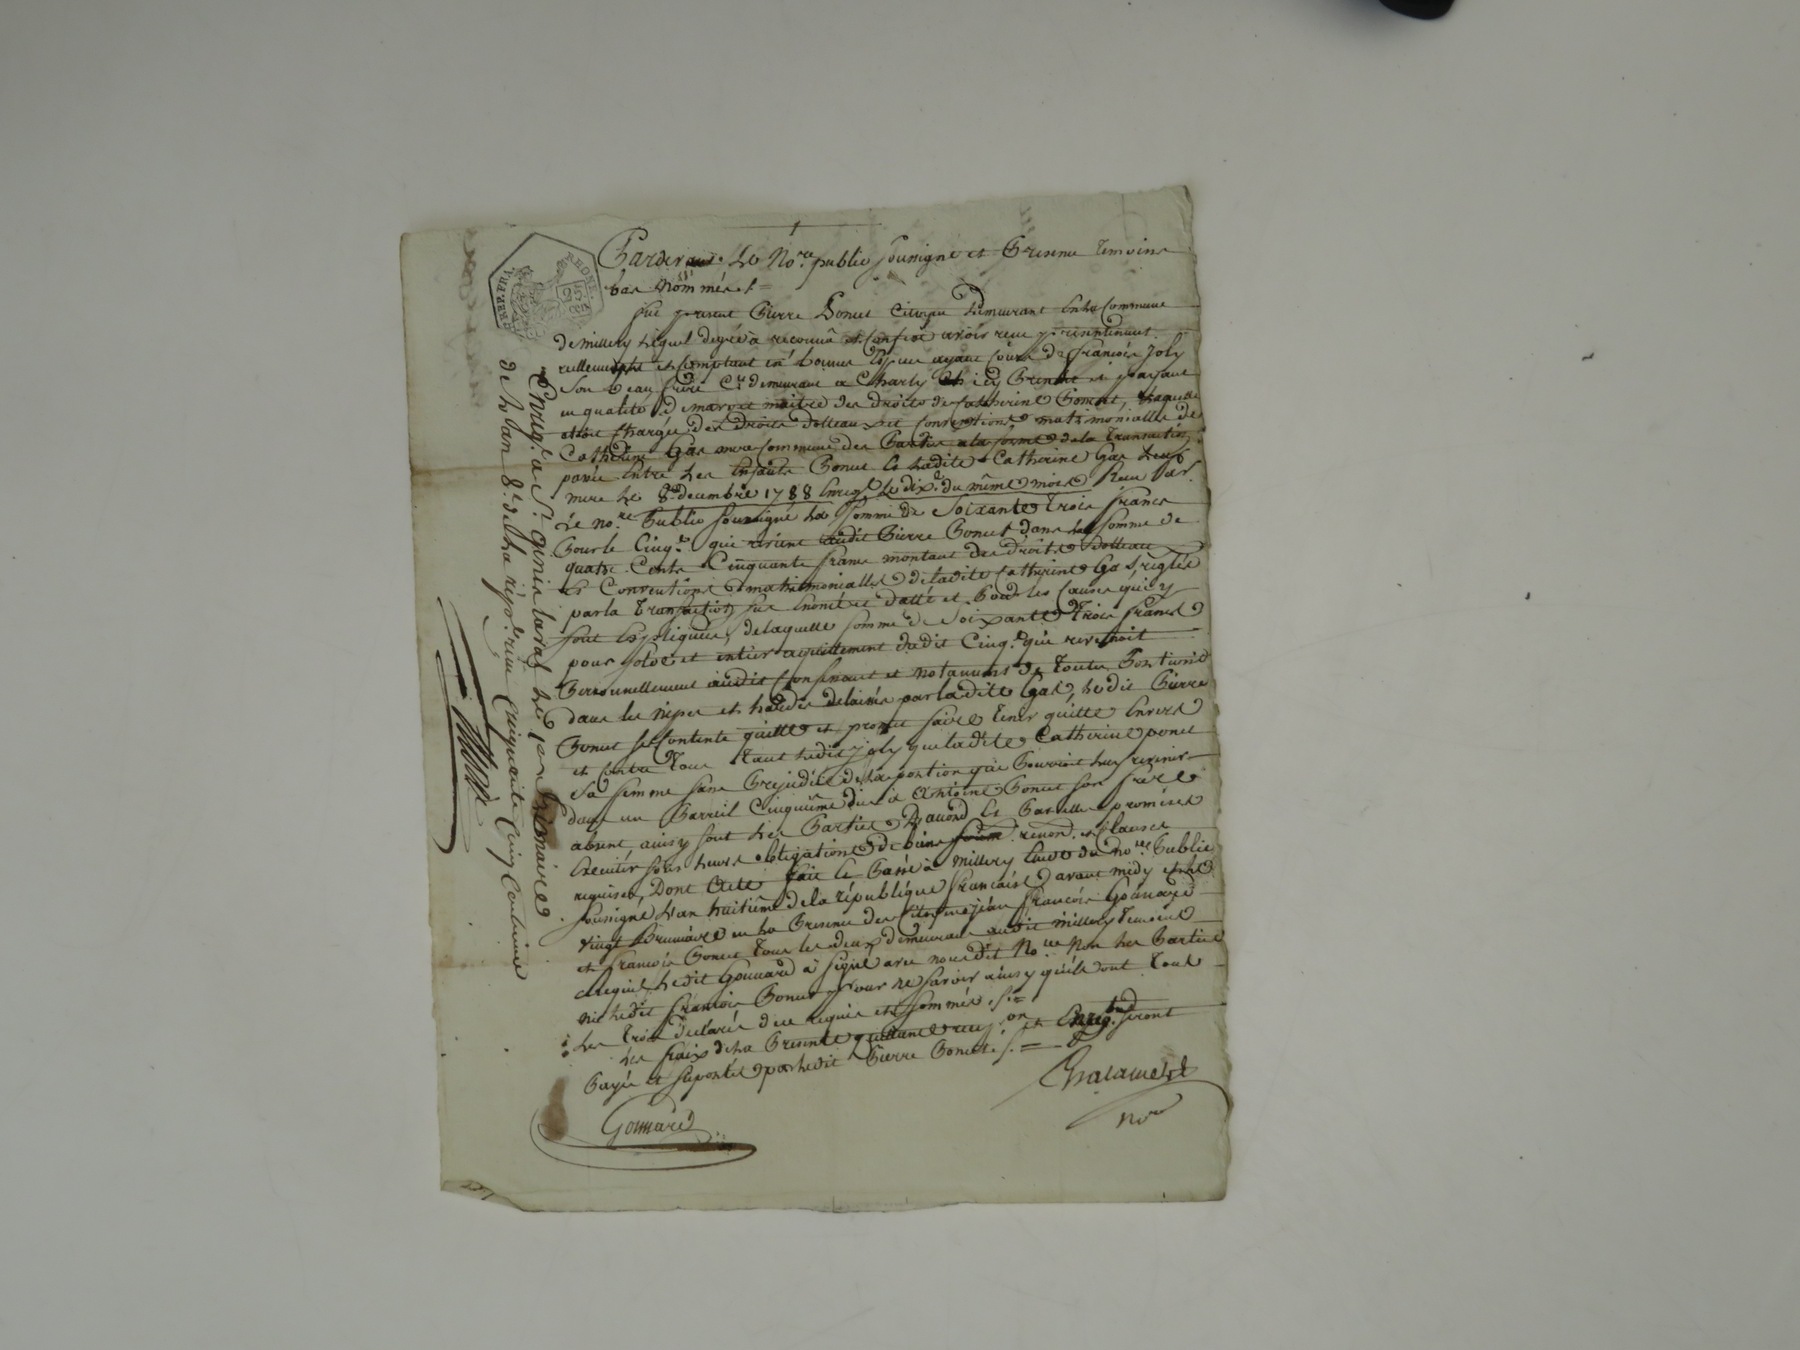 Pardevant Le No.re public soussigné et Presence temoins
bas Nommés.
fut present Pierre Bonet Citoyen demeurant en la Commune
de millery Lequel de gré à reconnû et confessé avoir recu presentement
réellement et comptant en bonnes Especes ayant cours de françois Joly
son beau frere C.en demeurant a Charly ici Present et payant
en qualité de mary et maitre des droits de Catherine Bonnet, Laquelle
etoit chargée des droits dotteaux et conventions matrimonialles de
Catherine Gas mere commune des Parties a la forme de la transaction
passée Entre les Enfants Bonet et Ladite Catherine Gas leur
mere Le 8.e decembre 1788 Enregé. Le dix.e du même mois Recu Par
Le no.re Public soussigné La somme de Soixante trois francs
Pour le Cinq.e qui revient audit Pierre Bonet dans la somme de
quatre Cents Cinquante francs montant des droits dotteaux
et Conventions matrimonialles de ladite Catherine Gas, reglés
par la transaction sus Enoncée datté et Pour les causes qui y
sont Expliquées, de laquelle somme de Soixante trois francs
pour solde et entier aquittement dudit Cinq.e qui revenoit
Personnellement audit Confessant et notament de toutes Portions
dans les nipes et hardes delaissés par ladite Gas, Ledit Pierre
Bonet se Contente quitte et promet faire tenir quitte Envers
et contre tous tant Ledit Joly que ladite Catherine ponet
sa femme sans Prejudice de la portion qui Pourroit leur revenir
dans un Pareil Cinquième du à Antoine Bonet son frere
absent, ainsy sont Les Parties D'accord et Parelles promises
Executer sous leurs obligations de biens renond. et clauses
requises, Dont Acte fait et Passé a millery Etude du no.re Public
soussigné L'an huitième de la république francaise avant midy et le
vingt Brumaire en la Presence des Citoyens jean françois Goûnard
et françois Bonet tous les deux demeurant audit millery temoins
Lequel Ledit Gonnard à signé avec nous dit No.re Non Les Parties
ni Ledit francois Bonet pour ne savoir ainsy qu'ils ont tous
Les trois déclarés de ce requis et sommés.
Les fraix de La Presente quittance et Enreg.on seront
Payés et suportés par Ledit Pierre Bonet.
Chalamel
no.re
Gonnard
Enreg.é a S.t genis laval Le 1er frimaire
de L'an 8.e de La rép.e recu Cinquante Cinq Centimes
RHONE.
25